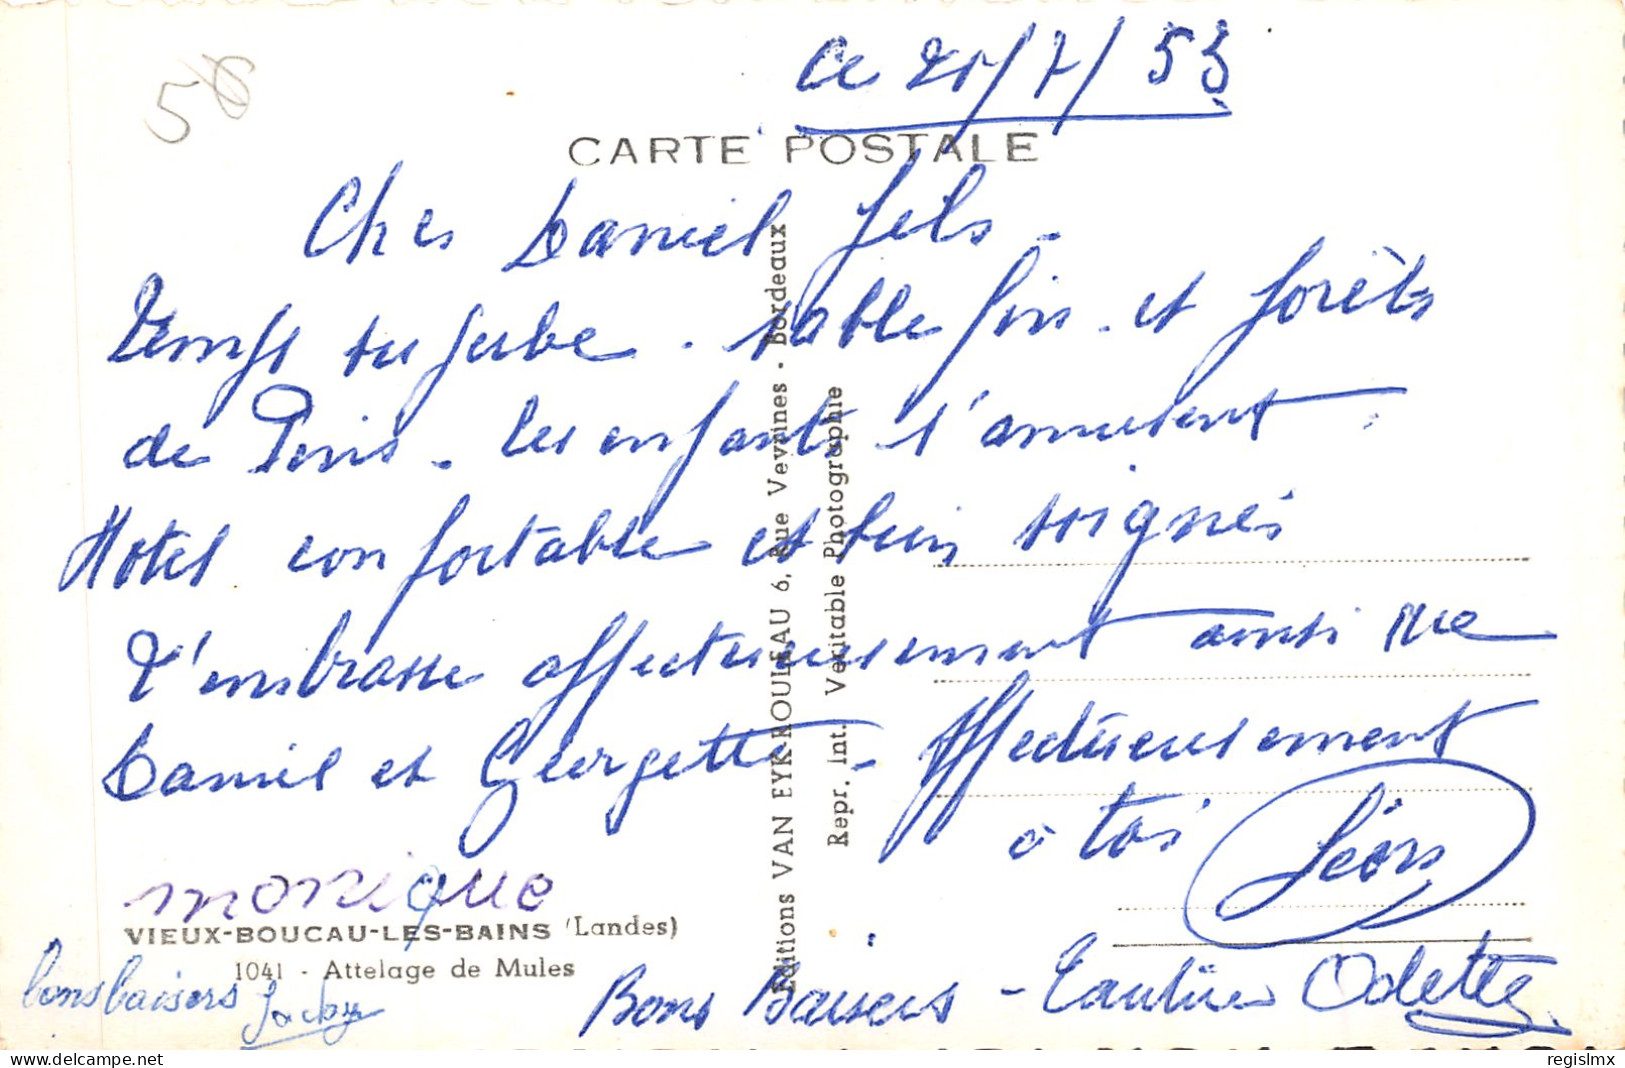 56
Ce 21/7/53
CARTE POSTALE
Cher Daniel fils -
Temps superbe - sable fin - et forêts
de Pins - les enfants s'amusent
Hotel confortable et bien soignés
T'embrasse affectueusement ainsi que
Daniel et Georgette - Affectueusement
à toi Léon
monique
VIEUX-BOUCAU-LES-BAINS (Landes)
1041 - Attelage de Mules
bons baisers Jacky
Bons Baisers - Odette
Editions VAN EYK-ROULEAU 6, Rue Vevrines - Bordeaux
Repr. int. Veritable Photographie
regislmx
https://www.delcampe.net